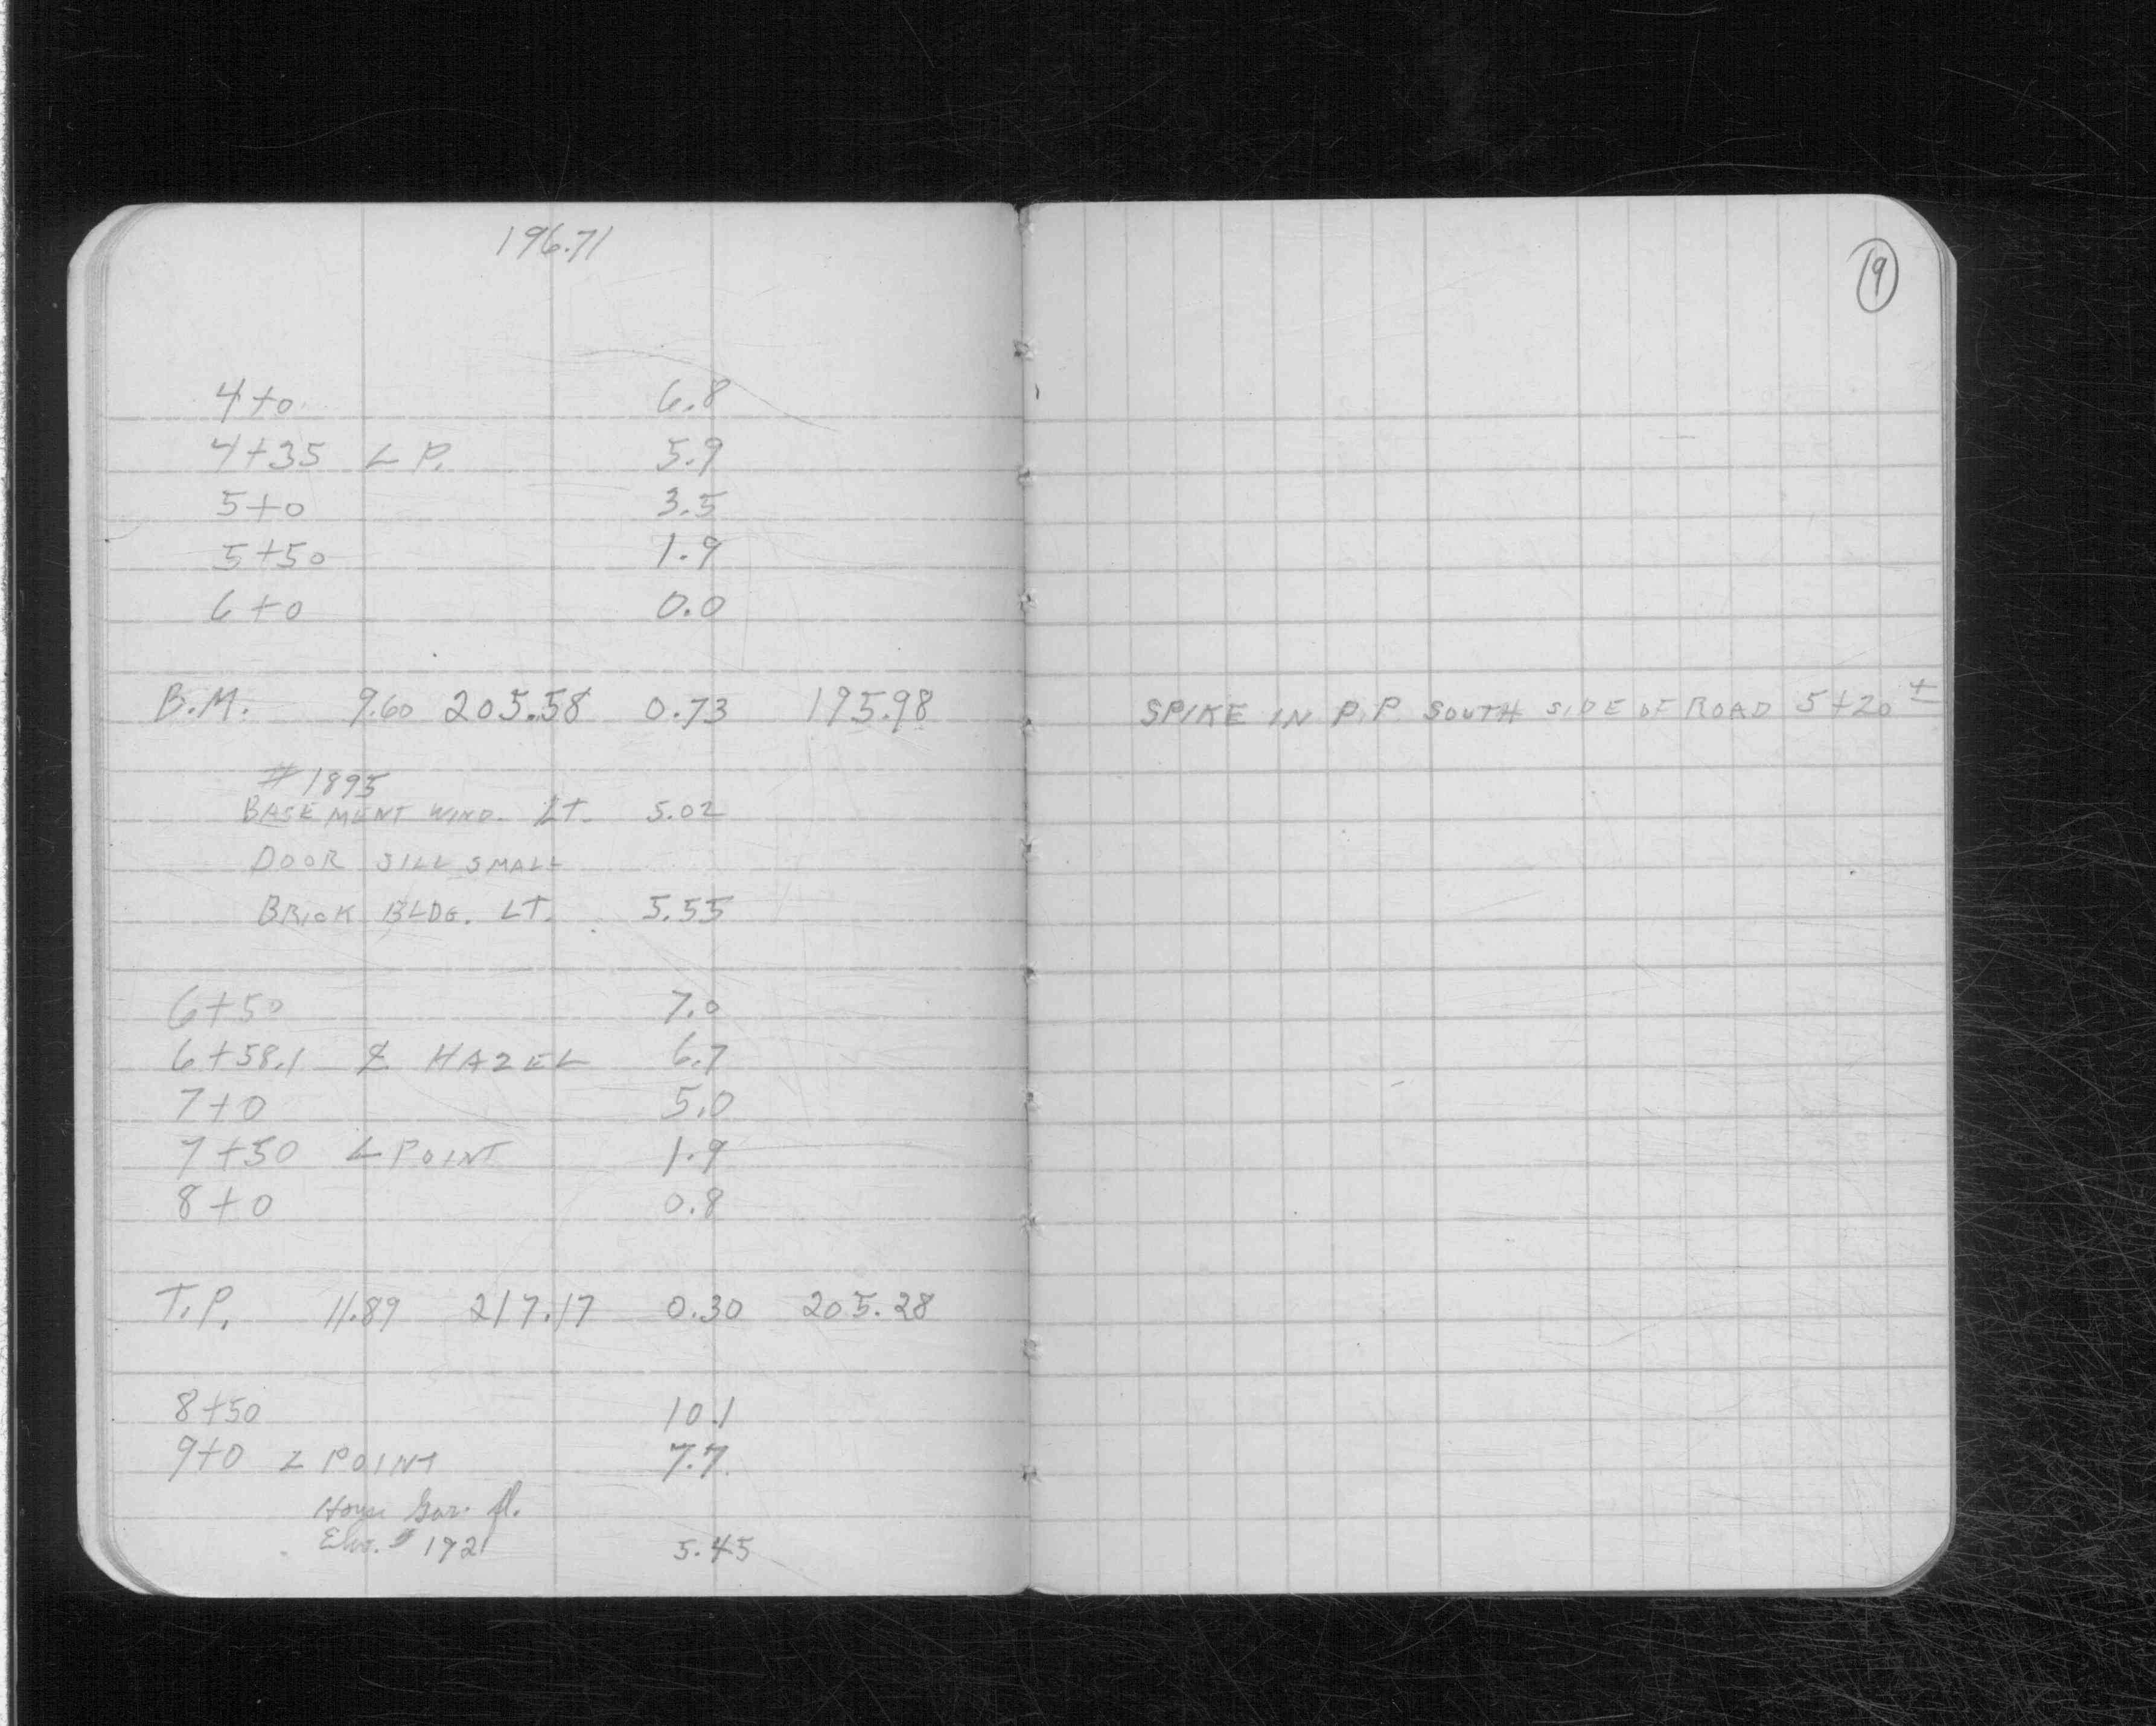 196.71
9
4+0 6.8
4+35 L P. 5.9
5+0 3.5
5+50 1.9
6+0 0.0
B.M. 9.60 205.58 0.73 195.98 SPIKE IN P.P SOUTH SIDE OF ROAD 5+20 ±
# 1895
BASEMENT WIND. LT. 5.02
DOOR SILL SMALL
BRICK BLDG. LT. 5.55
6+50 7.0
6+58.1 ⅊ HAZEL 6.7
7+0 5.0
7+50 L POINT 1.9
8+0 0.8
T.P. 11.89 217.17 0.30 205.28
8+50 10.1
9+0 L POINT 7.7
Gar. fl.
# 1921 5.45